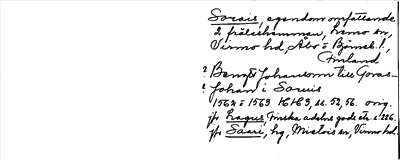 Sorais, egendom omfattande
2 frälsehemman, Lemo sn,
Virmo hd, Åbo o Björneb. l.,
Finland
? Bengt Johansson till Goras-
? Johan i Soruis
1562 o 1569 KH 9, ss. 52, 56. orig.
jfr Lagus, Finska adelns gods etc s. 226.
jfr Saari, hg, Mietois sn, Virmo hd.